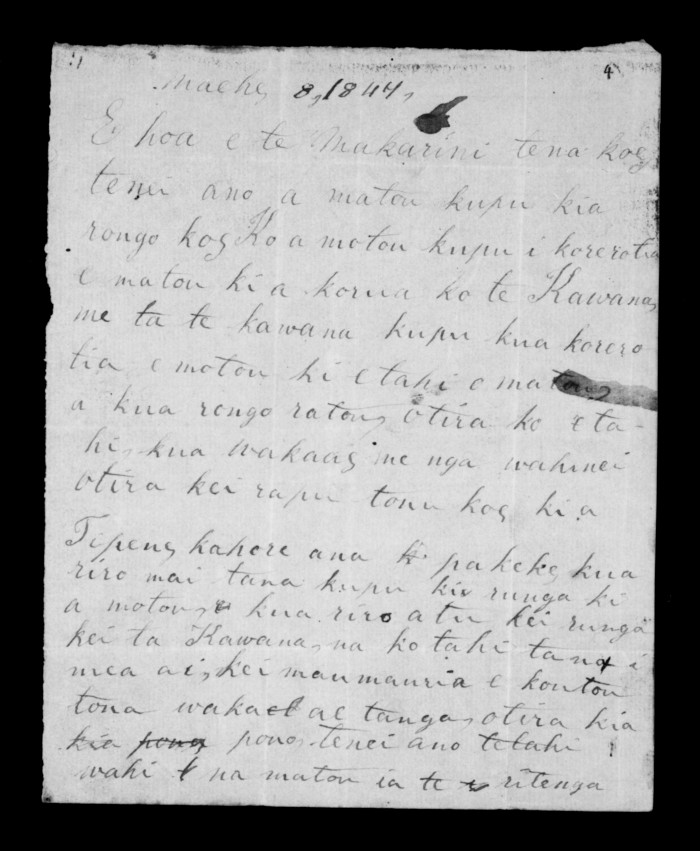 4
Maehe, 8, 1844,
E hoa e te Makarini tena koe,
tenei ano a matou kupu kia
rongo koe, Ko a motou kupu i korerotia
e matou ki a korua ko te Kawana,
me ta te kawana kupu kua korero
tia e motou ki etahi o matou,
a kua rongo ratou, otira ko eta-
hi, kua wakaae, me nga wahinei
otira kei rapu tonu koe, ki a
Tipene, kahore ana pakeke, kua
riro mai tana kupu kei runga ki
a motou, kua riro atu kei runga
kei ta Kawana, na ko tahi tana i
mea ai, kei maumauria e koutou
tona wakaaetanga, otira kia
kia pono pono, tenei ano tetahi
wahi na matou ia te ritenga